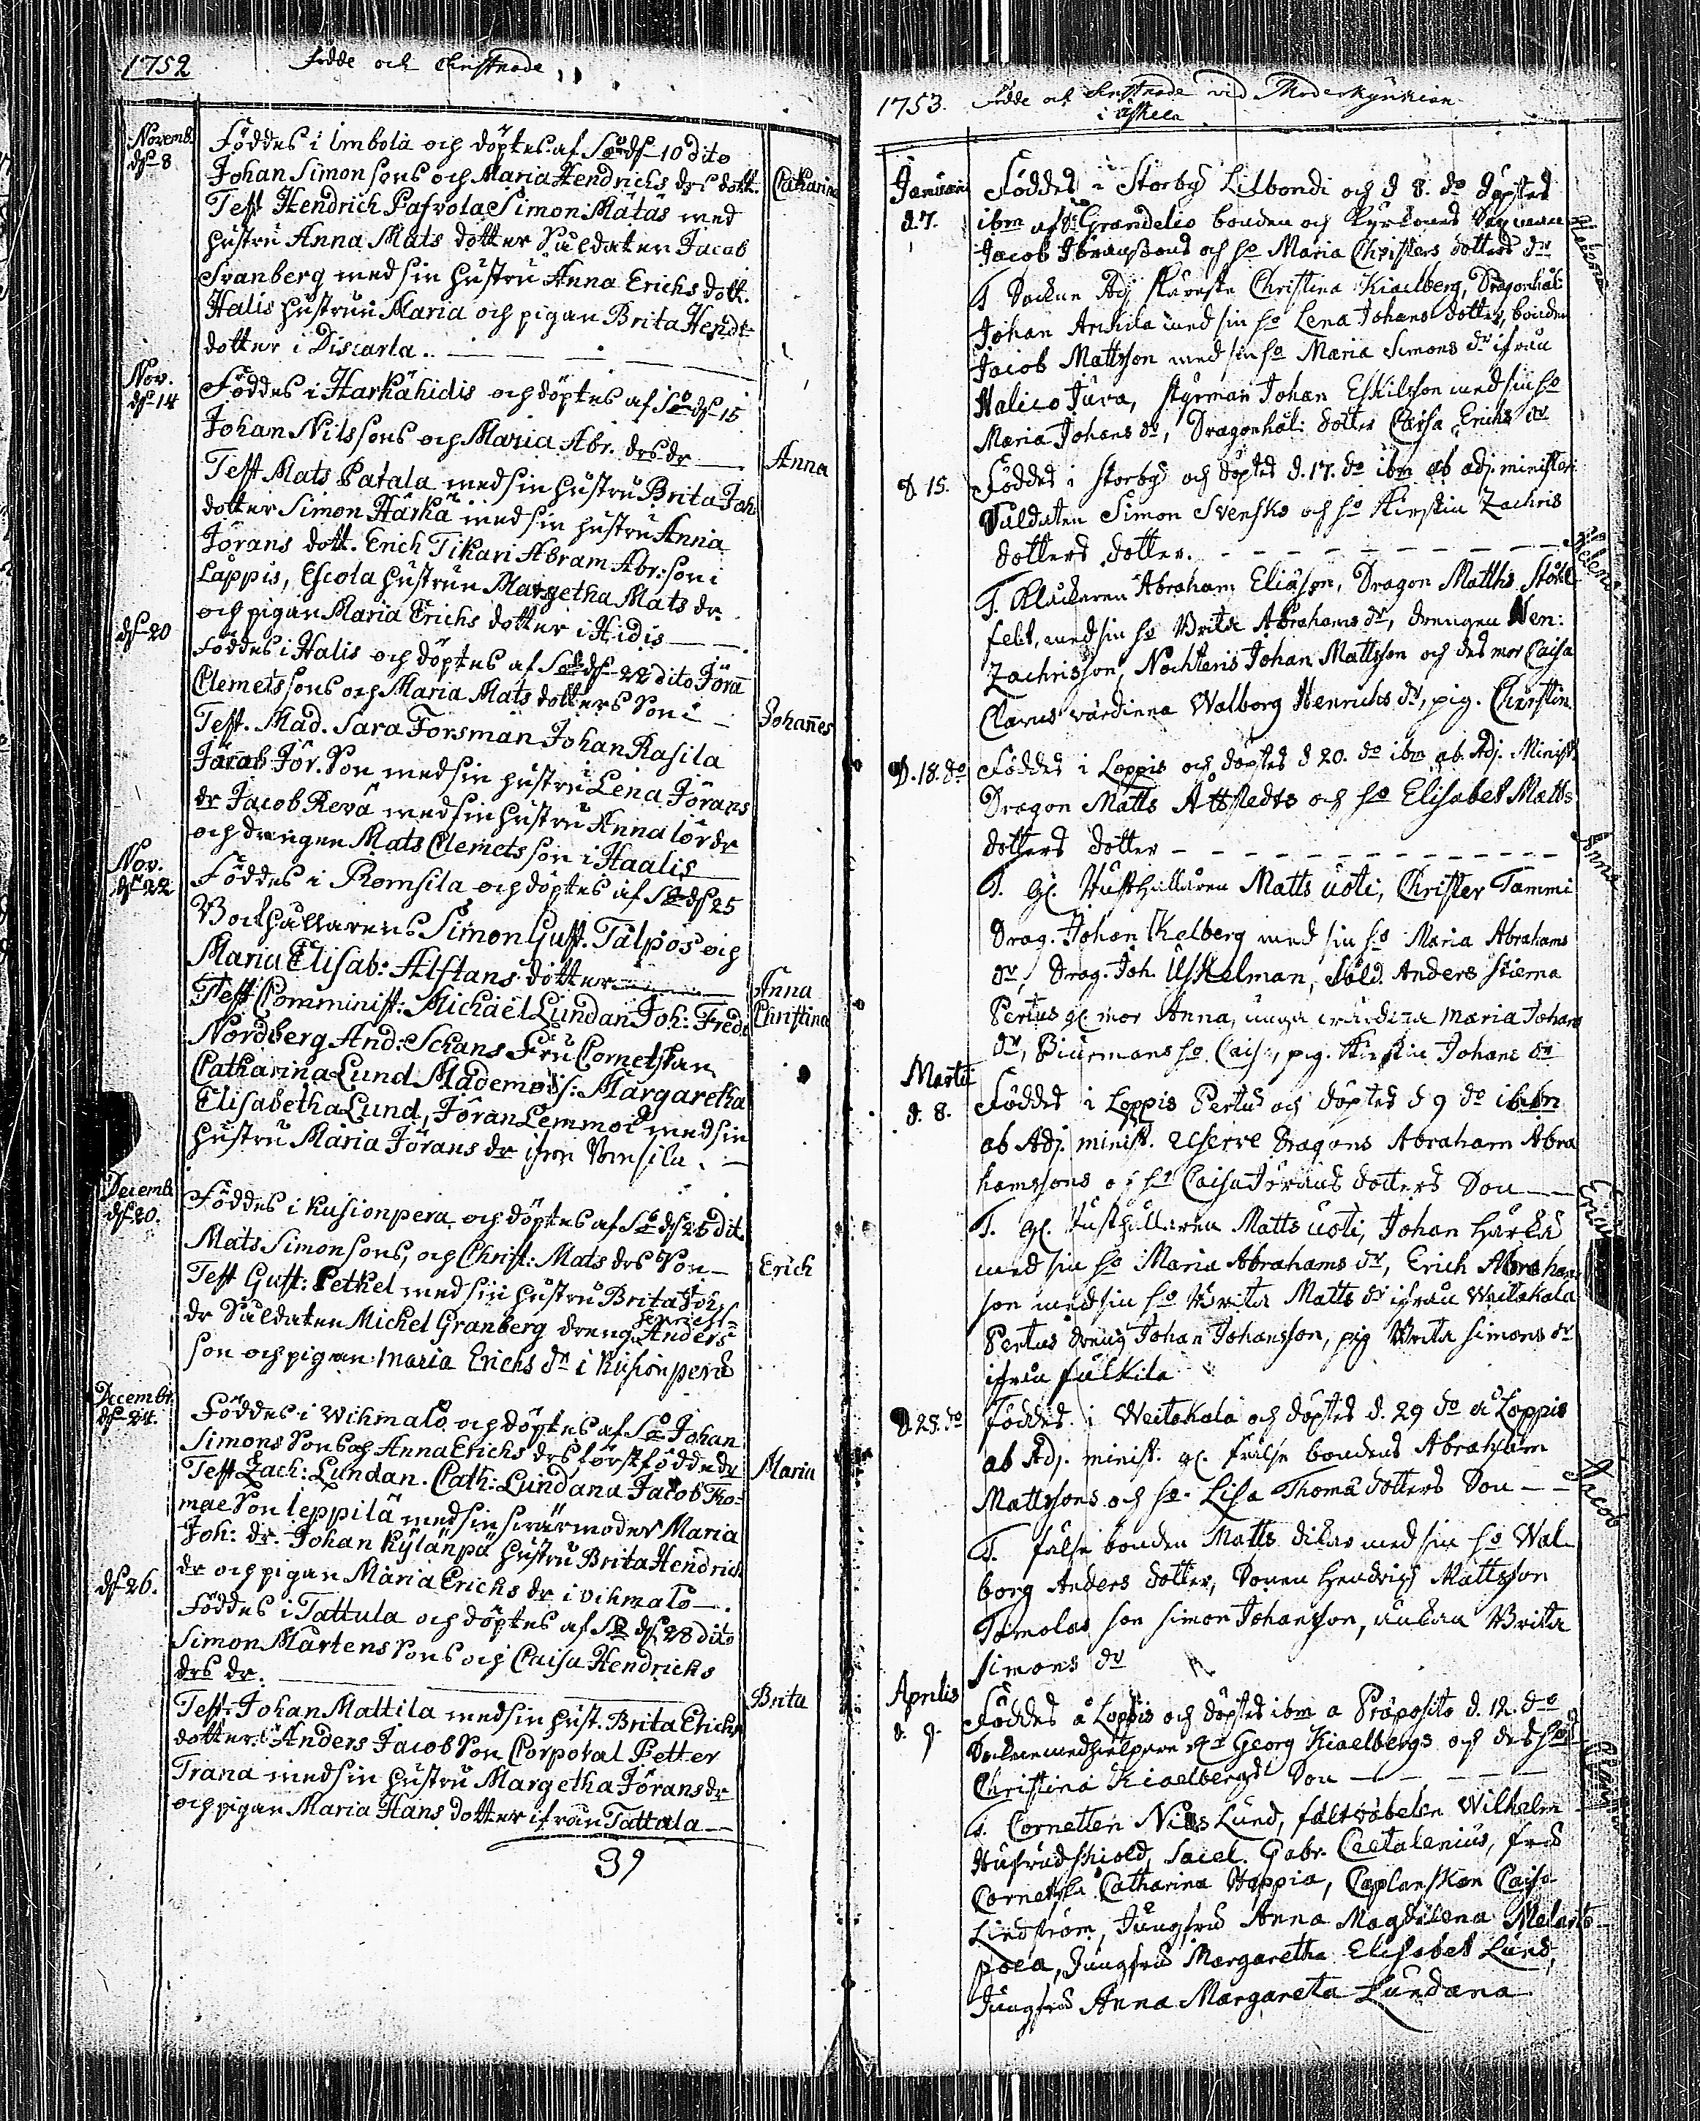 1752 Födde och Christnade
Novemb. Föddes i Imbola och döptes af 10 dito
d. 8 Johan Simonsons och Maria Hendrichs drs dott. Catharina
Test Hendrich Pafvola Simon Matäs med
hustru Anna Mats dotter Suldaten Jacob
Svanberg med sin hustru Anna Erichs dott.
Halis hustrun Maria och pigan Brita Hendr
dotter i Discarla
Nov. Föddes i Harkähidis och döptes af d. 15
d. 14 Johan Nilssons och Maria Abr. drs dr Anna
Test Mats Patala med sin hustru Brita Joh
dotter Simon Härkä med sin hustru Anna
Jörans dott. Erich Tikari Abram Abr: son i
Lappis, Escola hustrun Margetha Mats dr
och pigan Maria Erichs dotter i Hidis
d. 20 Föddes i Halis och döptes af d. 22 dito Jöra
Clemetssons och Maria Mats dotters Son Johanes
Test. Mad. Sara Forsman Johan Rasila
Jacob Jör. Son med sin hustru Lena Jörans
dr Jacob Revä med sin hustru Anna dr
och drengen Mats Clemetsson i Haalis
Nov. Föddes i Romsila och döptes af d. 25
d. 22 Simon Gust. Talpos och
Maria Elisab: Alftans dotter Anna
Test Comminist: Michaël Lundan Joh: Fredr Christina
Nordberg And: Schans Fru Cornetskan
Catharina Lund Mademois: Margaretha
Elisabetha Lund, Jöran Lemmoi med sin
hustru Maria Jörans dr ifrån
Decemb. Föddes i Kusionpera och döptes af d. 25 dit.
d. 20. Mats Simonsons, och Christ: Mats drs Son Erich
Test Gust: Pethel med sin hustru Brita Joh
dr Suldaten Michel Granberg dreng Anders
son och pigan Maria Erichs dr i Kusionpera
Decembr. Föddes i Wihmalo och döptes af Johan
d. 24. Simons Sons och Anna Erichs drs förstfödde dr Maria
Test Zach: Lundan. Cath: Lundana Jacob Tho-
mae Son Leppilä med sin svärmoder Maria
Joh: dr. Johan Kylänpä hustru Brita Hendrich
dr och pigan Maria Erichs dr i Vihmalo
d. 26. Föddes i Tattula och döptes af d. 28 dito
Simon Martens Sons och Caisa Hendrichs
drs dr. Brita
Test: Johan Mattila med sin hust. Brita Erichs
dotter: Anders Jacob Son Corporal Petter
Trana med sin hustru Margetha Jörans dr
och pigan Maria Hans dotter ifrån Tattala
39
1753. Födde och Christnade vid Moderkyrkian
i Uskela
Januarii Föddes i Storby Lilbondi och d 8. do döptes
d. 7. ibm af Hr Grandelio bonden och Kyrkones
Jacob Jöranssons och ho Maria Christers dotters dr Helena
T Christina Kiaelberg, Dragonhål:
Johan Ankila med sin ho Lena Johans dotter, bonden
Jacob Mattsson med sin ho Maria Simons dr ifrån
Halico Jura, styrman Johan Eskilsson med sin ho
Maria Johans dr, Dragonhål: dotter Caisa Erichs dr
D. 15. Föddes i Storby och döptes d. 17. do ibm ab adj. ministerii
Suldaten Simon Svensks och ho Kirstin Zachris
dotters dotter. Helena
T. Klåckaren Abraham Eliasson, Dragon Matths Stökel
felt, med sin ho Brita Abrahams dr, drengen Hen:
Zachrisson, Nochteris Johan Mattsson och des mor Caisa
Clavus värdinna Walborg Henrichs dr, pig. Christin
D. 18. do Föddes i Loppis och döptes d 20. do ibm ab. Adj. Minist.
Dragon Matts Attstedts och ho Elisabet Matts
dotters dotter Anna
T. gl. Rusthållaren Matts Uoti, Christer Tammi
Drag. Johan Kelberg med sin ho Maria Abrahams
dr, Drag. Joh. Uskelman, Sold. Anders Stierna
Pertus gl. mor Anna, unga värdina Maria Johans
dr, Biurmans ho Caisa, pig. Kirstin Johans dr
Martii Föddes i Loppis Pertus och döptes d 9 do ibm
d. 8. ab Adj. minist. Reserve Dragons Abraham Abra
hamssons och ho Caisa Jörans dotters Son Erich
T. gl. Rusthållaren Matts Uoti, Johan Härkä
med sin ho Maria Abrahams dr, Erich Abraham
son med sin ho Brita Matts dr ifrån Weitakala
Pertus dreng Johan Johansson, pig Brita Simons dr
ifrån Fulkila
D. 25. do Föddes i Weitakala och döptes d. 29 do a Loppis
ab Adj. minist. gl. frälse bondens Abraham
Mattssons och ho Lisa Thomä dotters Son Jacob
T. frälse bonden Matts Dikar med sin ho Wal-
borg Anders dotter, Sonen Hendrich Mattsson
Tomolas son Simon Johansson, enkan Brita
Simons dr
Aprilis Föddes a Loppis och döptes ibm a Präposito d. 12. do
d. 9. Georg Kiaelbergs och des ho
Christina Kiaelbergs Son
T. Cornetten Nils Lund, fältväbelen Wilhelm
Hufvudskiold, Saiel. Gabr. Caetalenius, fru
Cornetsk. Catharina Hoppia, Caplanskan Caisa
Lindström, Jungfru Anna Magdalena Melarto
poea, Jungfru Margaretha Elisabet Lund,
Jungfru Anna Margareta Lundana